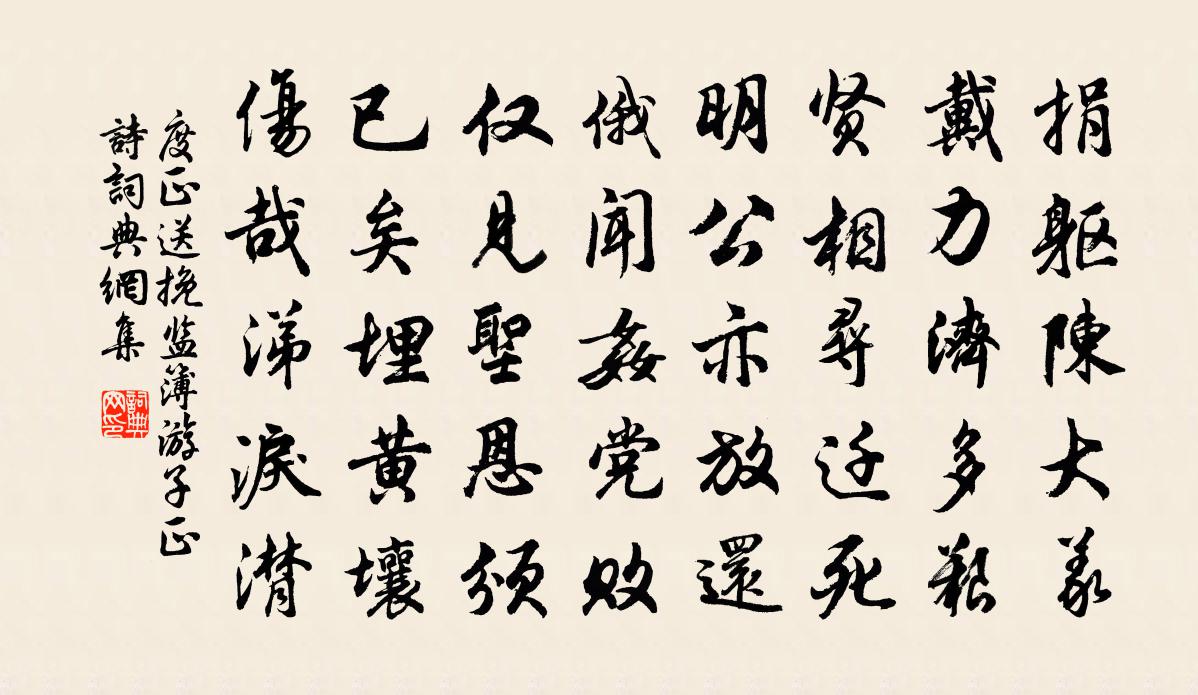 捐軀陳大義
戴力濟多艱
贤相尋迁死
明公亦放還
俄聞姦党败
仅見聖恩颁
已矣埋黄壤
傷哉涕淚潸
度正送挽监簿游子正
詩詞典網集
詞典网印